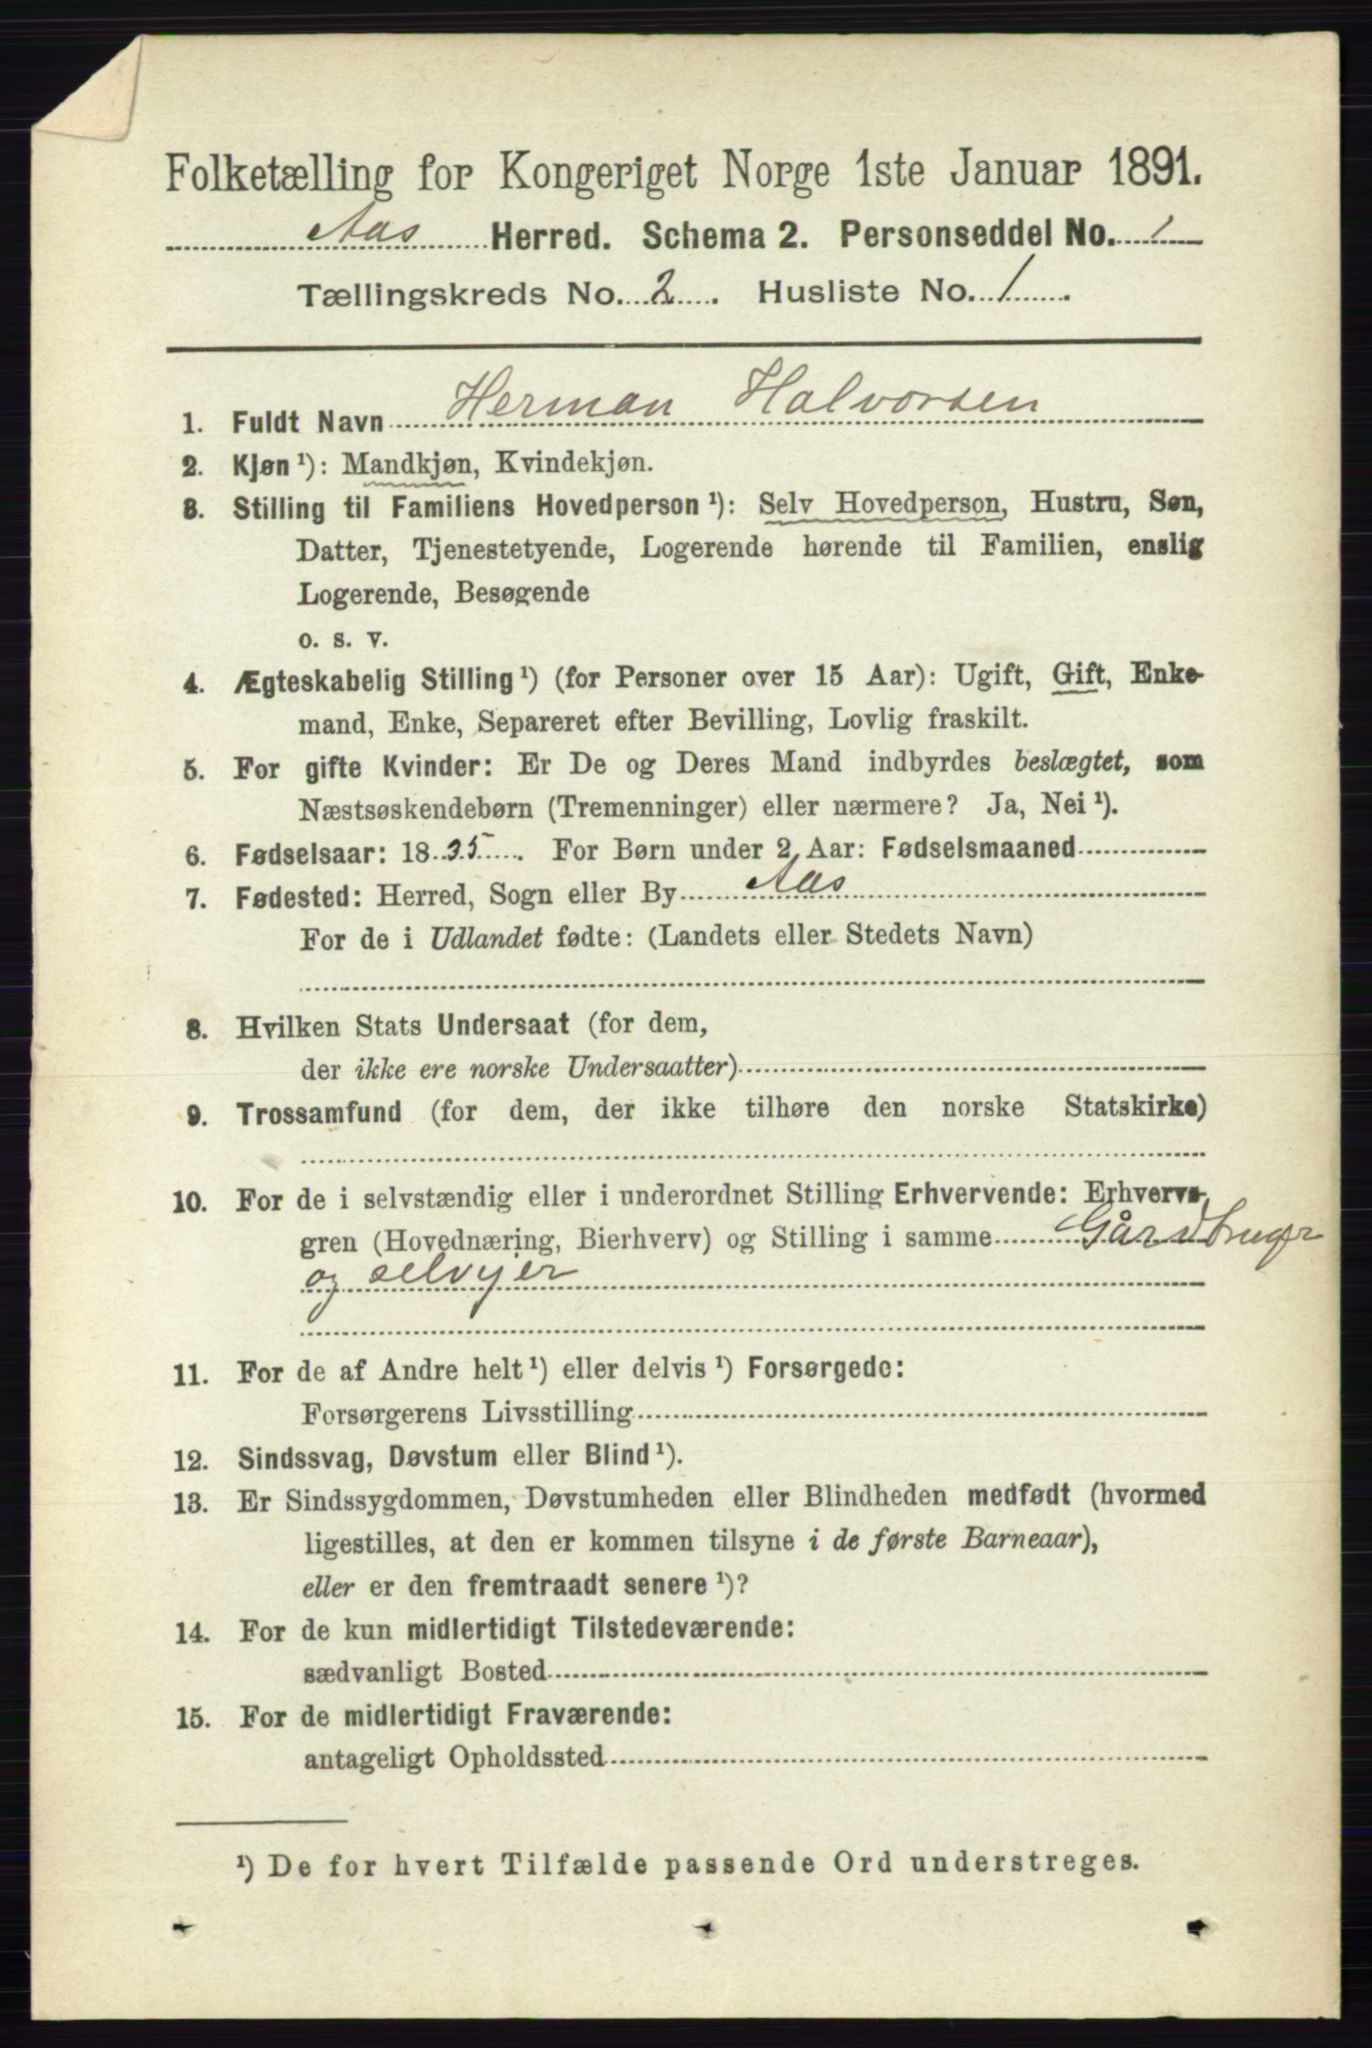 Folketælling for Kongeriget Norge 1ste Januar 1891.
Aas Herred. Schema 2. Personseddel No. 1
Tællingskreds No. 2. Husliste No. 1.
1. Fuldt Navn Herman Halvorsen
2. Kjøn ¹): Mandkjøn, Kvindekjøn.
3. Stilling til Familiens Hovedperson ¹): Selv Hovedperson, Hustru, Søn,
Datter, Tjenestetyende, Logerende hørende til Familien, enslig
Logerende, Besøgende
o. s. v.
4. Ægteskabelig Stilling ¹) (for Personer over 15 Aar): Ugift, Gift, Enke-
mand, Enke, Separeret efter Bevilling, Lovlig fraskilt.
5. For gifte Kvinder: Er De og Deres Mand indbyrdes beslægtet, som
Næstsøskendebørn (Tremenninger) eller nærmere? Ja, Nei ¹).
6. Fødselsaar: 1835. For Børn under 2 Aar: Fødselsmaaned
7. Fødested: Herred, Sogn eller By Aas
For de i Udlandet fødte: (Landets eller Stedets Navn)
8. Hvilken Stats Undersaat (for dem,
der ikke ere norske Undersaatter)
9. Trossamfund (for dem, der ikke tilhøre den norske Statskirke)
10. For de i selvstændig eller i underordnet Stilling Erhvervende: Erhvervs-
gren (Hovednæring, Bierhverv) og Stilling i samme Gårdbruger
og selvejer
11. For de af Andre helt ¹) eller delvis ¹) Forsørgede:
Forsørgerens Livsstilling
12. Sindssvag, Døvstum eller Blind ¹).
13. Er Sindssygdommen, Døvstumheden eller Blindheden medfødt (hvormed
ligestilles, at den er kommen tilsyne i de første Barneaar),
eller er den fremtraadt senere ¹)?
14. For de kun midlertidigt Tilstedeværende:
sædvanligt Bosted
15. For de midlertidigt Fraværende:
antageligt Opholdssted
¹) De for hvert Tilfælde passende Ord understreges.